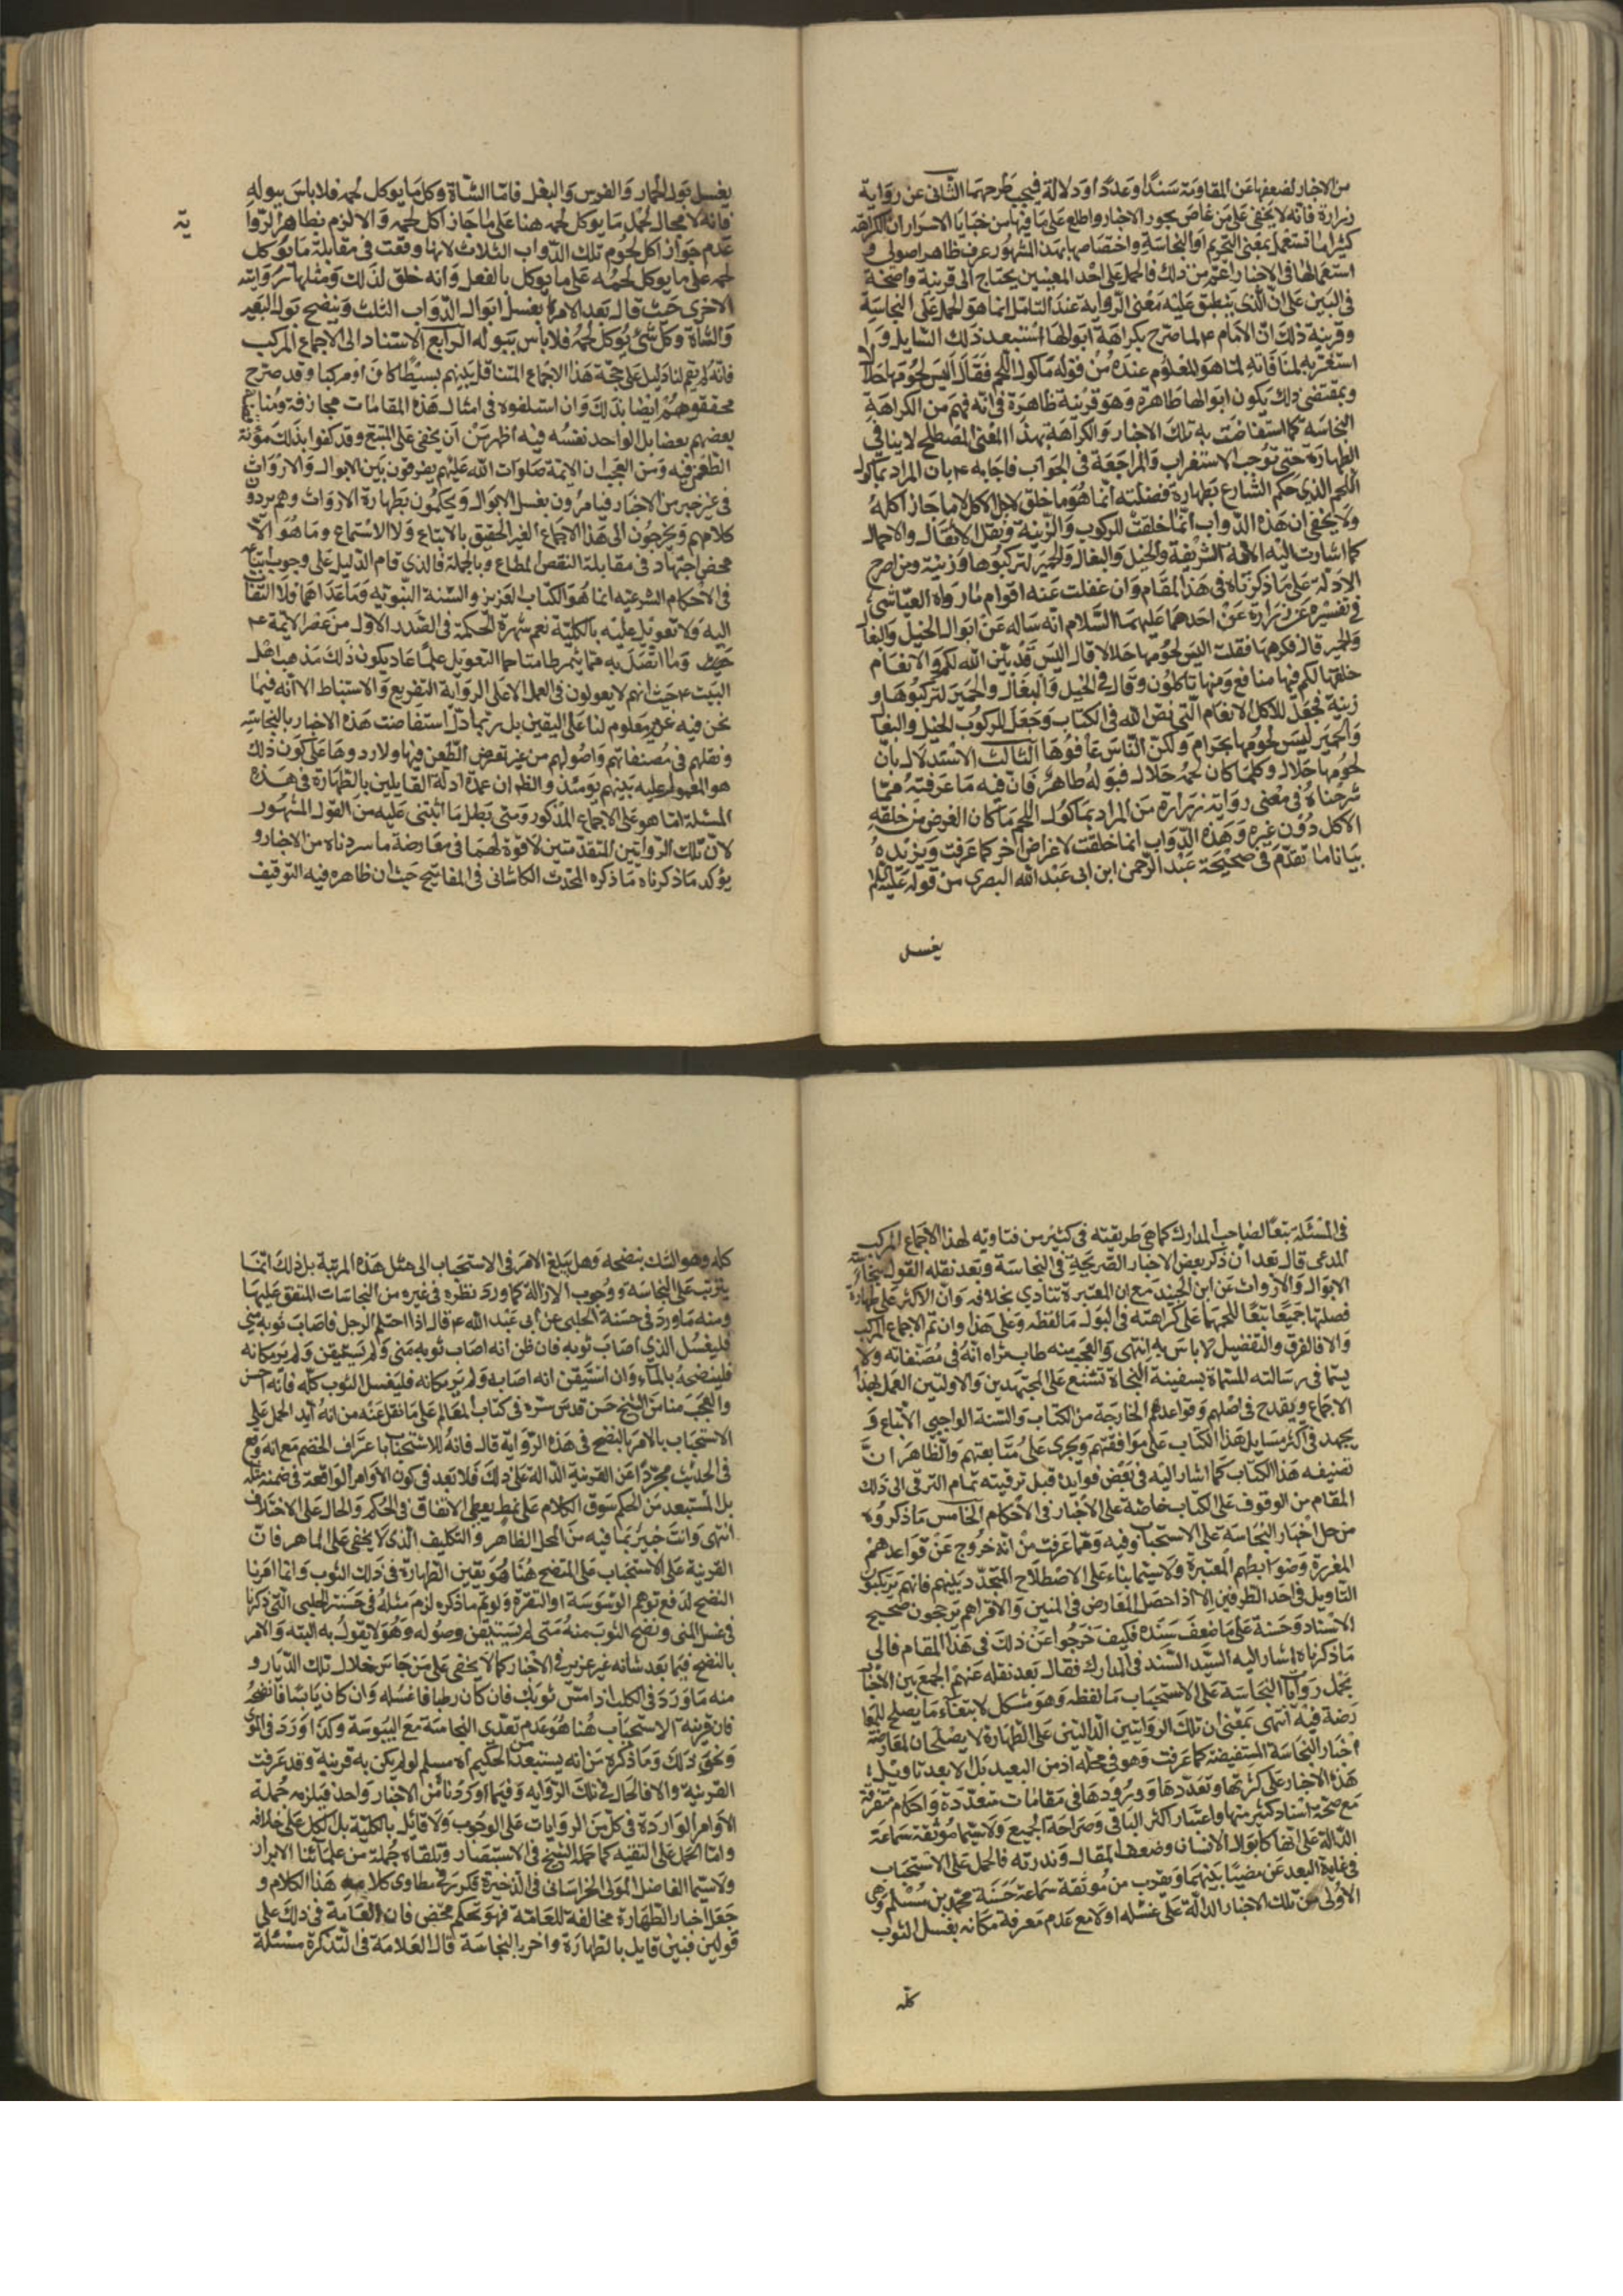 من الاخبار لضعفها عن المقاومة سندا وعددا ودلالة فيجب طرحهما الثانى عن رواية
زرارة فانه لا يخفى على من غاص بحور الاخبار واطلع على ما فيها من خبايا الاسرار ان الكراهة
كثيرا ما تستعمل بمعنى التحريم او النجاسة واختصاصها بهذا المشهور عرف ظاهر اصولى و
استعمالها فى الاخبار اعم من ذلك فالحمل على احد المعنيين يحتاج الى قرينة واضحة
فى البين على ان الذى ينطبق عليه معنى الرواية عند التامل انما هو الحمل على النجاسة
وقرينة ذلك ان الامام ع لما صرح بكراهة ابوالها استبعد ذلك السايل و
استغربه لمنافاته لما هو المعلوم عنده من قوله ماكول اللحم فقال اليس لحومها حلالا
وبمقتضى ذلك يكون ابوالها طاهرة وهو قرينة ظاهرة فى انه فهم من الكراهة
النجاسة كما استفاضت به تلك الاخبار والكراهة بهذا المعنى المصطلح لا ينافى
الطهارة حتى توجب الاستغراب والمراجعة فى الجواب فاجابه ع بان المراد بماكول
اللحم الذى حكم الشارع بطهارة فضلته انما هو ما خلق لاجل الاكل لا ما جاز اكله
ولا يخفى ان هذه الدواب انما خلقت للركوب والزينة ونقل الاثقال والاحمال
كما اشارت اليه الآية الشريفة والخيل والبغال والحمير لتركبوها وزينة ومن اصرح
الادلة على ما ذكرناه فى هذا المقام وان غفلت عنه اقوام ما رواه العياشى
فى تفسيره عن زرارة عن احدهما عليهما السلام انه ساله عن ابوال الخيل والبغال
والحمير قال فكرهها فقلت اليس لحومها حلالا قال اليس قد بين الله لكم والانعام
خلقها لكم فيها منافع ومنها تاكلون وقال فى الخيل والبغال والحمير لتركبوها و
زينة فجعل للاكل الانعام التى نص الله فى الكتاب وجعل للركوب الخيل والبغال
والحمير ليس لحومها بحرام ولكن الناس عافوها الثالث الاستدلال بان
لحومها حلال وكلما كان لحمه حلال فبوله طاهر فان فيه ما عرفته مما
شرحناه فى معنى رواية زرارة من المراد بماكول اللحم ما كان الغرض من خلقه
الاكل دون غيره وهذه الدواب انما خلقت لاغراض اخر كما عرفت ويزيده
بيانا ما تقدم فى صحيحة عبد الرحمن ابن ابى عبد الله البصرى من قوله عليه السلام
يغسل
يغسل بول الحمار والفرس والبغل فاما الشاة وكل ما يوكل لحمه فلا باس ببوله
فانه لا مجال لحمل ما يوكل لحمه هنا على ما جاز اكل لحمه والا لزم بظاهر الروا
ية
عدم جواز اكل لحوم تلك الدواب الثلاث لانها وقعت فى مقابلة ما يوكل
لحمه على ما يوكل لحمه على ما يوكل بالفعل وانه خلق لذلك ومثلها روايته
الاخرى حيث قال بعد الامر بغسل ابوال الدواب الثلث وينضح بول البعير
والشاة وكل شئ يوكل لحمه فلا باس ببوله الرابع الاستناد الى الاجماع المركب
فانه لم يقم لنا دليل على حجية هذا الاجماع المتناقل بينهم بسيطا كان او مركبا وقد صرح
محققوهم ايضا بذلك وان استلفوه فى امثال هذه المقامات مجازفة
بعضهم بعضا بل الواحد نفسه فيه اظهر من ان يخفى على المتتبع وقد كفوا بذلك مؤنة
الطعن فيه ومن العجب ان الائمة صلوات الله عليهم يفرقون بين الابوال والارواث
فى غير خبر من الاخبار فيامرون بغسل الابوال ويحكمون بطهارة الارواث وهم يردون
كلامهم ويخرجون الى هذا الاجماع الغير الحقيق بالاتباع ولا الاستماع وما هو الا
محض اجتهاد فى مقابلة النص المطاع وبالجملة فالذى قام الدليل على وجوب اتباعه
فى الاحكام الشرعيه انما هو الكتاب العزيز والسنة النبويه وما عداهما فلا التفات
اليه ولا تعويل عليه بالكلية نعم شهرة الحكمة فى الصدر الاول من عصر الائمة ع
وما اتصل به مما يثمر التعويل عليها عاد يكون ذلك مذهب اهل
البيت ع حيث انهم لا يعولون فى العمل الا على الرواية التفريع والاستنباط الا انه فيما
نحن فيه غير معلوم لنا على اليقين بل ربما دل استفاضت هذه الاخبار بالنجاسة
ونقلهم فى مصنفاتهم واصولهم من غير تعرض الطعن فيها ولا ردوها على كون ذلك
هو المعمول عليه بينهم يومئذ والظ ان عمدة ادلة القايلين بالطهارة فى هذه
المسئلة انما هو على الاجماع المذكور ومتى بطل ما ابتنى عليه من القول المشهور
لان تلك الروايتين المتقدمتين لا قوة لهما فى معارضة ما سردناه من الاخبار و
يؤكد ما ذكرناه ما ذكره المحدث الكاشانى فى المفاتيح حيث ان ظاهره فيه التوقيف
فى المسئلة تبعا لصاحب المدارك كما هى طريقته فى كثير من فتاويه لهذا الاجماع المركب
المدعى قال بعد ان ذكر بعض الاخبار الصريحة فى النجاسة وبعد نقله القول بنجاسة
الابوال والارواث عن ابن الجنيد مع ان المعتبرة تنادى بخلافه وان الاكثر على طهارة
فضلتها جميعا تبعا للحمها على كراهته فى البول ما لفظه وعلى هذا وان تم الاجماع المركب
والا فالفرق والتفصيل لا باس به انتهى والعجب منه طاب ثراه انه فى مصنفاته ولا
سيما فى رسالته المسماة بسفينة النجاة تشنع على المجتهدين والاولين العمل بهذا
الاجماع ويقدح فى اصلهم وقواعدهم الخارجة من الكتاب والسنة الواجبى الاتباع و
يجهد فى اكثر مسايل هذا الكتاب على موافقتهم ويجرى على متابعتهم والظاهر ان
تصنيفه هذا الكتاب كما اشار اليه فى بعض فوايده قبل ترقيته تمام الترقى الى ذلك
المقام من الوقوف على الكتاب خاصة على الاخبار فى الاحكام الخامس ما ذكروه
من حل اخبار النجاسة على الاستحباب وفيه وهما عرفت من انه خروج عن قواعدهم
المقررة وضوابطهم المعتبرة ولا سيما بناء على الاصطلاح المتجدد بينهم فانهم يرتكبون
التاويل فى احد الطرفين الا اذا حصل التعارض فى المنين والا فتراهم يرجحون صحيح
الاسناد وحسنه على ما ضعف سنده فكيف خرجوا عن ذلك فى هذا المقام فالى
ما ذكرناه اشار اليه السيد السند فى المدارك فقال بعد نقله عنهم الجمع بين الاخبار
بحمل روايات النجاسة على الاستحباب ما لفظه وهو مشكل لانتفاء ما يصلح للمعا
رضة فيه انتهى بمعنى ان تلك الروايتين الدالتين على الطهارة لا يصلحان لمعارضة
اخبار النجاسة المستفيضة كما عرفت وهو فى محله اذ من البعيد بل الابعد تاويل
هذه الاخبار على كثرتها وتعددها وورودها فى مقامات متعددة واحكام متفرقة
مع صحة اسناد كثير منها واعتبار اكثر الباقى وصراحة الجميع ولا سيما موثقة سماعة
الدالة على انها كابوال الانسان وضعف المقال وندرته فالحمل على الاستحباب
فى غاية البعد عن مضيا بينهما ويقرب من موثقة سماعة حسنة محمد بن مسلم وهى
الاولى من تلك الاخبار الدالة على غسله اولا مع عدم معرفة مكانه بغسل الثوب
كله
كله وهو الشك بنضحه وهل يبلغ الامر فى الاستحباب الى مثل هذه المرتبة بل ذلك انما
يترتب على النجاسة ووجوب الازالة كما ورد نظره فى غيره من النجاسات المتفق عليها
ومنه ما ورد فى حسنة الحلبى عن ابى عبد الله ع قال اذا احتلم الرجل فاصاب ثوبه منى
فليغسل الذى اصاب ثوبه فان ظن انه اصاب ثوبه منى ولم يستيقن ولم ير مكانه
فلينضحه بالماء وان استيقن انه اصابه ولم ير مكانه فليغسل الثوب كله فانه احسن
والعجب منا من الشيخ حسن قدس سره فى كتاب المعالم على ما نقل عنه من انه آيد الحمل على
الاستحباب بالامر بالنضح فى هذه الرواية قال فانه للاستحباب باعتراف الخصم مع انه وقع
فى الحديث مجردا عن القرينة الدالة على ذلك فلا بعد فى كون الاوامر الواقعة فى ضمنه مثله
بل المستبعد من الحكيم سوق الكلام على نمط يعطى الاتفاق فى الحكم والحال على الاختلاف
انتهى وانت خبير بما فيه من المحل الظاهر والتكليف الذى لا يخفى على الماهر فان
القرينة على الاستحباب على النضح هنا هو يقين الطهارة فى ذلك الثوب وانما امرنا
النضح لدفع توهم الوسوسة او النفرة ولو تم ما ذكره لزم مثله فى حسنة الحلبى التى ذكرنا
فى غسل المنى ونضح الثوب منه متى لم يستيقن وصوله وهو لا يقول به البته والامر
بالنضح فيما بعد شانه غير عزيز فى الاخبار كما لا يخفى على من جاس خلال تلك الديار و
منه ما ورد فى الكلب اذا مس ثوبك فان كان رطبا فاغسله وان كان يابسا فانضحه
فان قرينة الاستحباب هنا هو عدم تعدى النجاسة مع اليبوسة وكذا ورد فى
ونحو ذلك وما ذكره من انه يستبعد من الحكيم اه مسلم لو لم يكن به قرينة وقد عرفت
القرينة والا فالحال فى تلك الرواية وفيما اوردناه من الاخبار واحد فيلزمه حملة
الاوامر الواردة فى كل من الروايات على الوجوب ولا قائل بالكلية بل الكل على خلافه
واما الحمل على التقيه كما حمله الشيخ فى الاستبصار وتلقاه جملة من علمائنا الابرار
ولا سيما الفاضل المولى الخراسانى فى الذخيرة فكرره فى مطاوى كلامه هذا الكلام و
جعل اخبار الطهارة مخالفة للعامة فهو تحكم محض فان العامة فى ذلك على
قولين فبين قايل بالطهارة واخر بالنجاسة قال العلامة فى التذكرة مسئلة